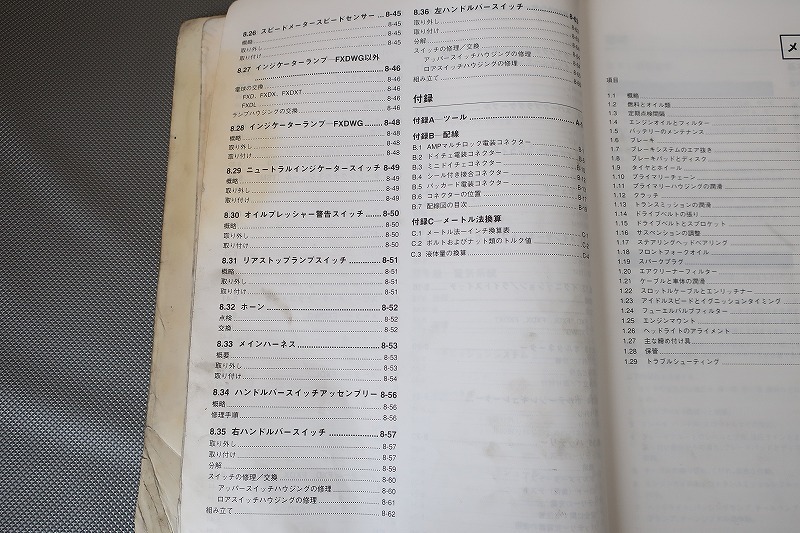 8.26 スピードメータースピードセンサー 8-45
概略 8-45
取り外し 8-45
取り付け 8-45
8.27 インジケーターランプ—FXDWG以外 8-46
電球の交換 8-46
FXD、FXDX、FXDXT 8-46
FXDL 8-46
ランプハウジングの交換 8-46
8.28 インジケーターランプ—FXDWG 8-48
概略 8-48
取り外し 8-48
取り付け 8-48
8.29 ニュートラルインジケータースイッチ 8-49
概略 8-49
取り外し 8-49
取り付け 8-49
8.30 オイルプレッシャー警告スイッチ 8-50
概略 8-50
取り外し 8-50
取り付け 8-50
8.31 リアストップランプスイッチ 8-51
概略 8-51
取り外し 8-51
取り付け 8-51
8.32 ホーン 8-52
点検 8-52
交換 8-52
8.33 メインハーネス 8-53
概要 8-53
取り外し 8-53
取り付け 8-54
8.34 ハンドルバースイッチアッセンブリー 8-56
概略 8-56
修理手順 8-56
8.35 右ハンドルバースイッチ 8-57
取り外し 8-57
取り付け 8-57
分解 8-59
スイッチの修理／交換 8-60
アッパースイッチハウジングの修理 8-60
ロアスイッチハウジングの修理 8-61
組み立て 8-62
8.36 左ハンドルバースイッチ
取り外し
取り付け
分解
スイッチの修理／交換
アッパースイッチハウジングの修理
ロアスイッチハウジングの修理
組み立て
付録
付録A—ツール
付録B—配線
B.1 AMPマルチロック電装コネクター
B.2 ドイチェ電装コネクター
B.3 ミニドイチェコネクター
B.4 シール付き接合コネクター
B.5 パッカード電装コネクター
B.6 コネクターの位置
B.7 配線図の目次
付録C—メートル法換算
C.1 メートル法—インチ換算表
C.2 ボルトおよびナット類のトルク値
C.3 液体量の換算
メ
項目
1.1 概略
1.2 燃料とオイル類
1.3 定期点検間隔
1.4 エンジンオイルとフィルター
1.5 バッテリーのメンテナンス
1.6 ブレーキ
1.7 ブレーキシステムのエア抜き
1.8 ブレーキパッドとディスク
1.9 タイヤとホイール
1.10 プライマリーチェーン
1.11 プライマリーハウジングの潤滑
1.12 クラッチ
1.13 トランスミッションの潤滑
1.14 ドライブベルトの張り
1.15 ドライブベルトとスプロケット
1.16 サスペンションの調整
1.17 ステアリングヘッドベアリング
1.18 フロントフォークオイル
1.19 スパークプラグ
1.20 エアクリーナーフィルター
1.21 ケーブルと車体の潤滑
1.22 スロットルケーブルとエンリッチナー
1.23 アイドルスピードとイグニッションタイミング
1.24 フューエルバルブフィルター
1.25 エンジンマウント
1.26 ヘッドライトのアライメント
1.27 主な締め付け具
1.28 保管
1.29 トラブルシューティング